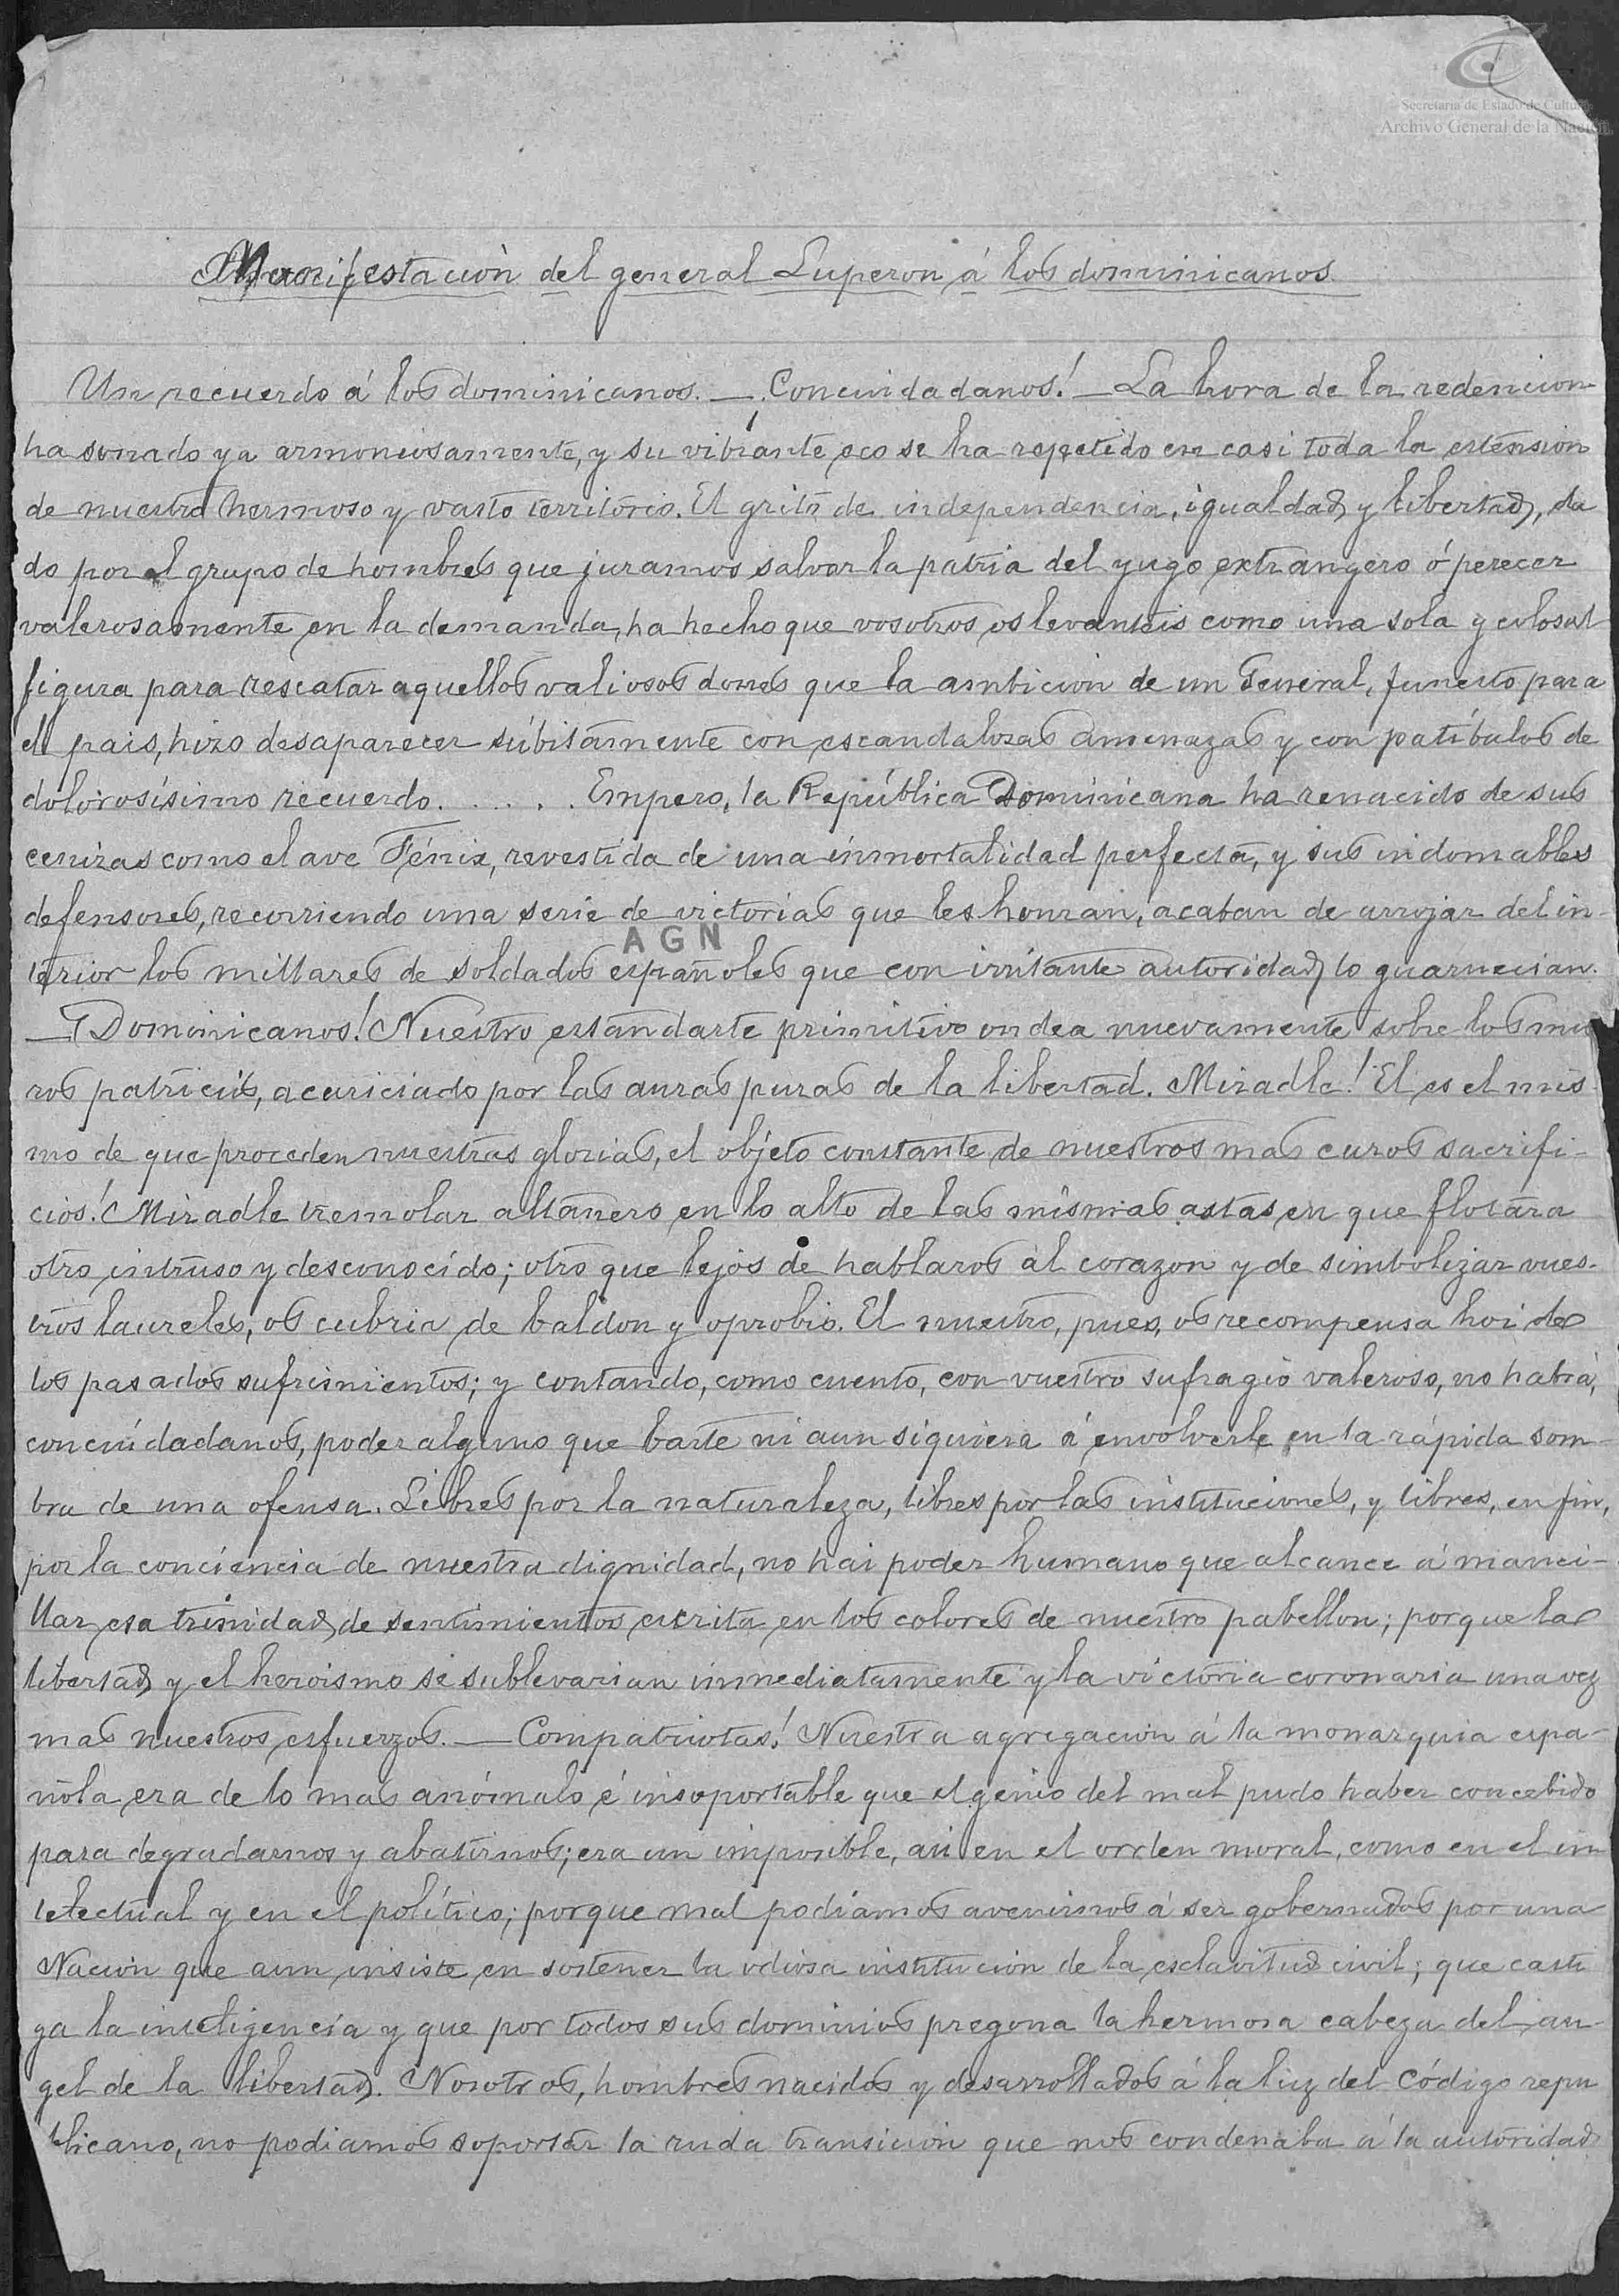 Secretaría de Estado de Cultura
Archivo General de la Nación
Manifestación del general Luperon á los dominicanos.
Un recuerdo á los dominicanos. — Conciudadanos! — La hora de la redencion
ha sonado ya armoniosamente, y su vibrante eco se ha repetido en casi toda la estension
de nuestro hermoso y vasto territorio. El grito de independencia, igualdad y libertad, da
do por el grupo de hombres que juramos salvar la patria del yugo extrangero ó perecer
valerosamente en la demanda, ha hecho que vosotros os levanteis como una sola y colosal
figura para rescatar aquellos valiosos dones que la ambicion de un General, funesto para
el pais, hizo desaparecer súbitamente con escandalosas amenazas y con patíbulos de
dolorosísimo recuerdo. . . . . . Empero, la República Dominicana ha renacido de sus
cenizas como el ave Fénix, revestida de una inmortalidad perfecta, y sus indomables
defensores, recorriendo una serie de victorias que les honran, acaban de arrojar del in-
AGN
terior los millares de soldados españoles que con irritante autoridad lo guarnecian.
— Dominicanos! Nuestro estandarte primitivo ondea nuevamente sobre los mu
ros patricios, acariciado por las auras puras de la libertad. Miradle! El es el mis-
mo de que proceden nuestras glorias, el objeto constante de nuestros mas caros sacrifi-
cios! Miradle tremolar altanero en lo alto de las mismas astas en que flotára
otro intruso y desconocido; otro que lejos de hablaros al corazon y de simbolizar vues-
tros laureles, os cubria de baldon y oprobio. El nuestro, pues, os recompensa hoi de
los pasados sufrimientos; y contando, como cuento, con vuestro sufragio valeroso, no habrá,
conciudadanos, poder alguno que baste ni aun siquiera á envolverle en la rápida som-
bra de una ofensa. Libres por la naturaleza, libres por las instituciones, y libres, en fin,
por la conciencia de nuestra dignidad, no hai poder humano que alcance á manci-
llar esa trinidad de sentimientos escrita en los colores de nuestro pabellon; porque la
libertad y el heroismo se sublevarian inmediatamente y la victoria coronaria una vez
mas nuestros esfuerzos. — Compatriotas! Nuestra agregacion á la monarquia espa-
ñola era de lo mas anómalo é insoportable que el genio del mal pudo haber concebido
para degradarnos y abatirnos; era un imposible, asi en el orden moral, como en el in
telectual y en el político; porque mal podiamos avenirnos á ser gobernados por una
Nacion que aun insiste en sostener la odiosa institucion de la esclavitud civil; que casti
ga la inteligencia y que por todos sus dominios pregona la hermosa cabeza del an-
gel de la libertad. Nosotros, hombres nacidos y desarrollados á la luz del Código repu
blicano, no podiamos soportar la ruda transicion que nos condenaba á la autoridad